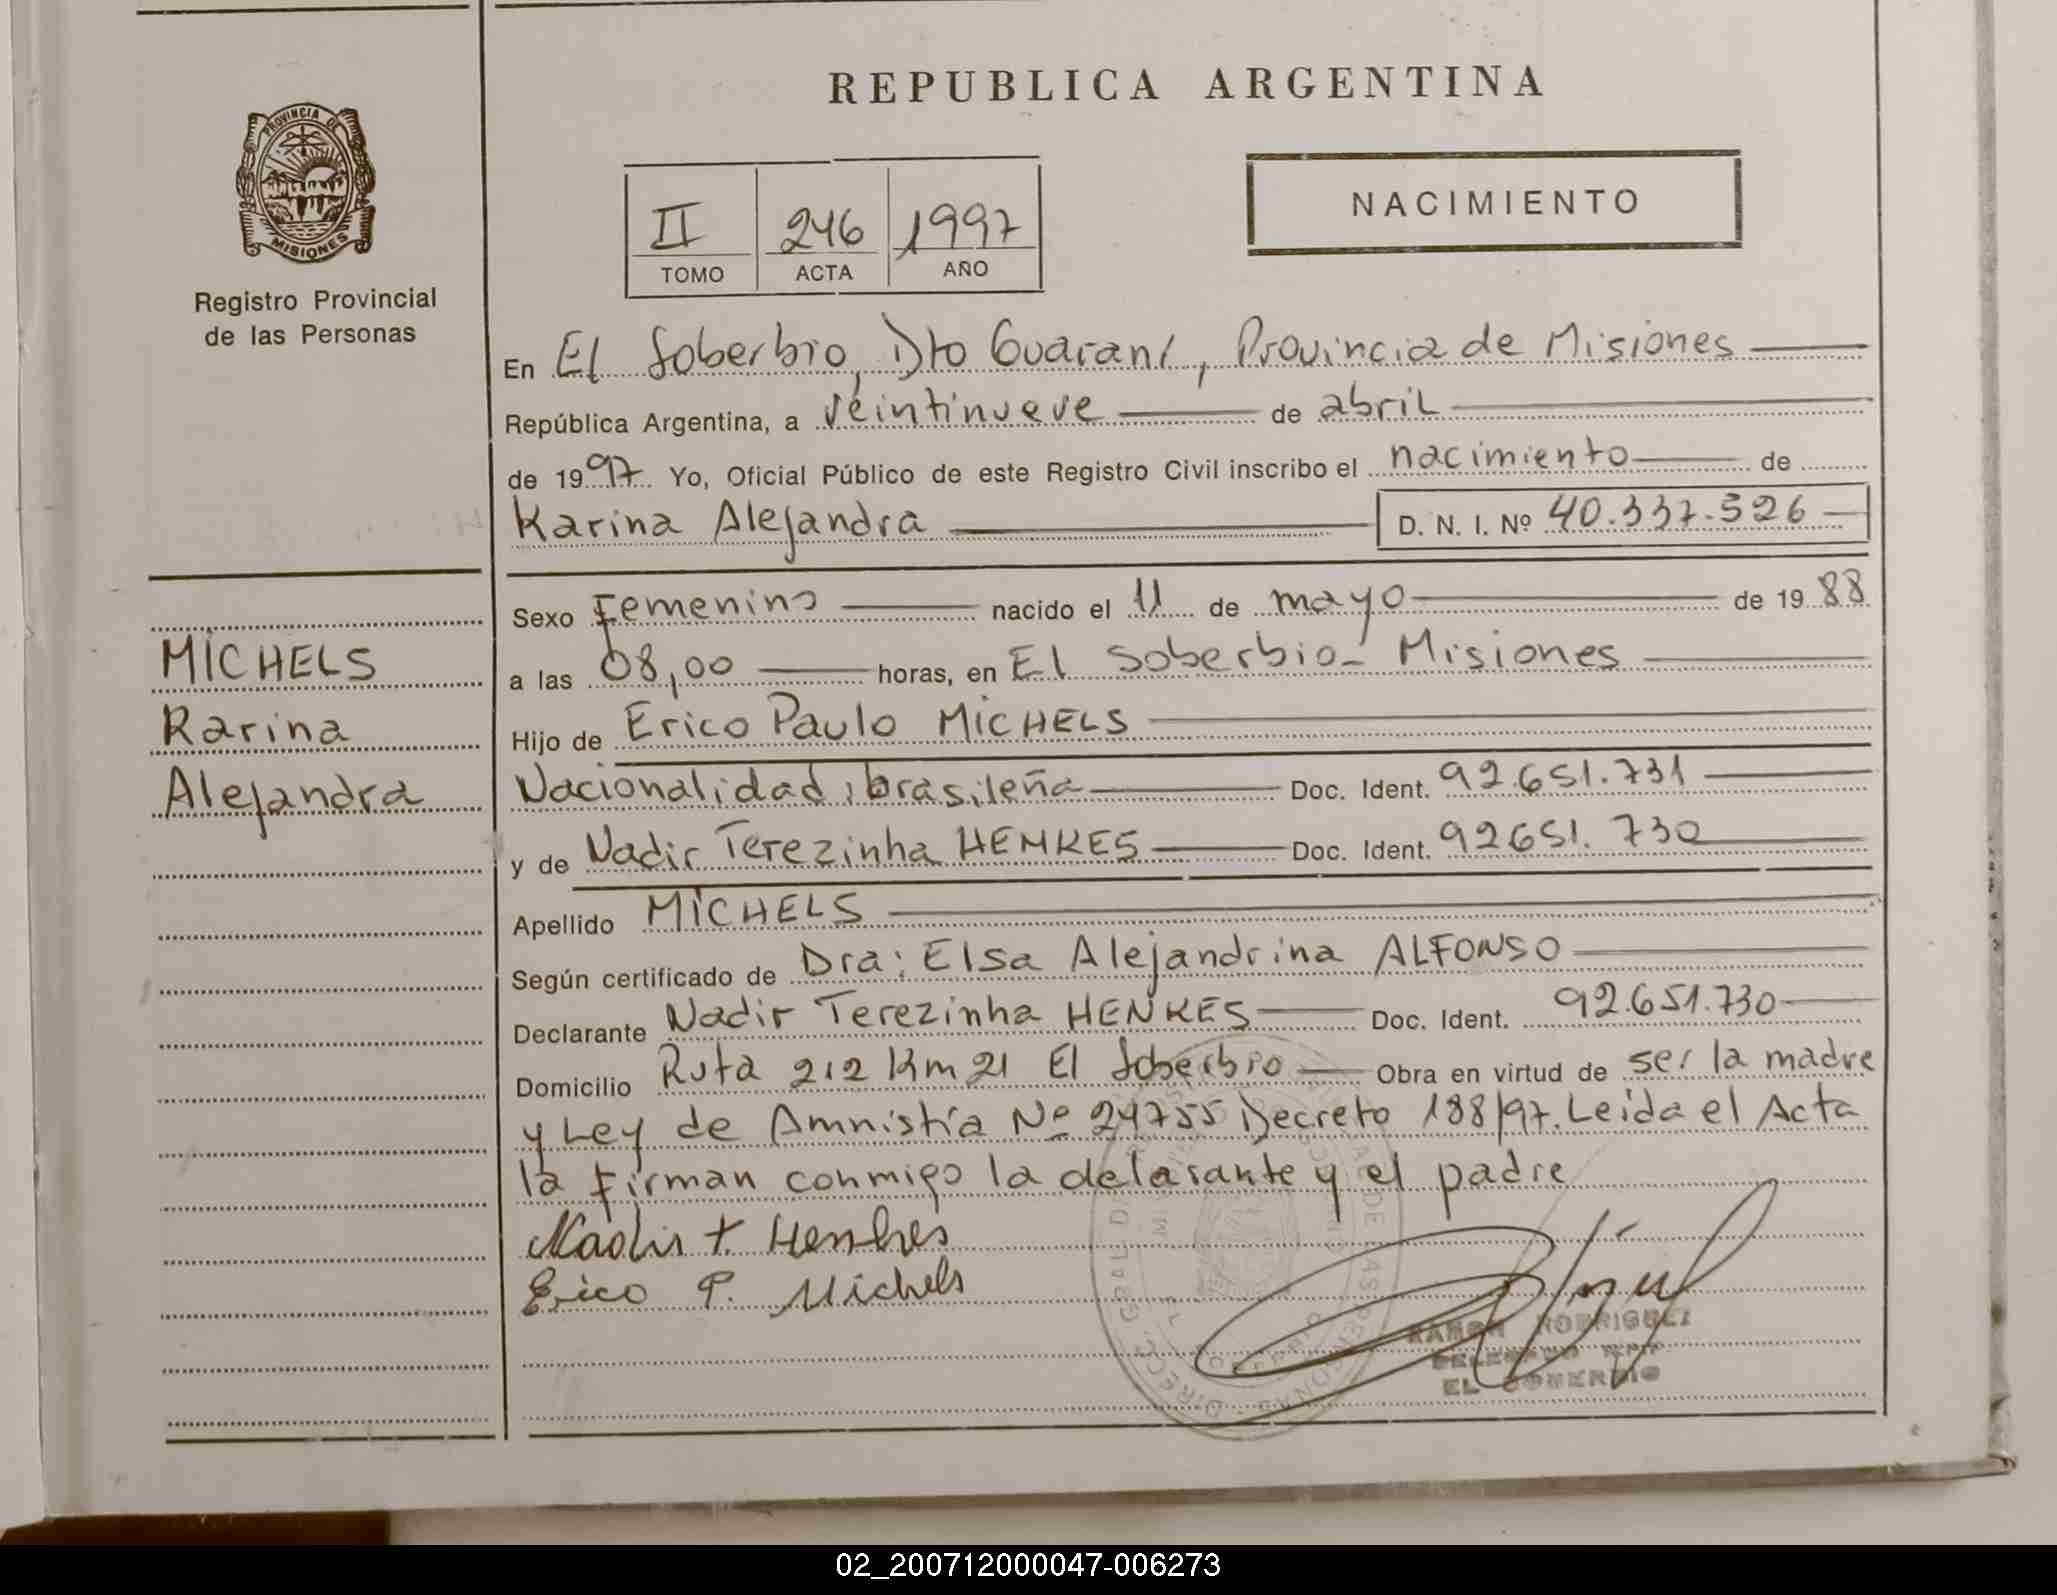 REPUBLICA ARGENTINA
PROVINCIA DE
MISIONES
Registro Provincial
de las Personas
II 246 1997
TOMO ACTA AÑO
NACIMIENTO
En El Soberbio, Dto Guaraní, Provincia de Misiones
República Argentina, a veintinueve de abril
de 1997 Yo, Oficial Público de este Registro Civil inscribo el nacimiento de
Karina Alejandra D. N. I. Nº 40.337.526
MICHELS
Karina
Alejandra
Sexo Femenino nacido el 11 de mayo de 1988
a las 08,00 horas, en El Soberbio - Misiones
Hijo de Erico Paulo MICHELS
Nacionalidad: brasileña Doc. Ident. 92.651.731
y de Nadir Terezinha HENKES Doc. Ident. 92651.730
Apellido MICHELS
Según certificado de Dra: Elsa Alejandrina ALFONSO
Declarante Nadir Terezinha HENKES Doc. Ident. 92.651.730
Domicilio Ruta 212 Km 21 El Soberbio Obra en virtud de ser la madre
y Ley de Amnistía Nº 24755 Decreto 188/97. Leida el Acta
la firman conmigo la delarante y el padre
Nadir T. Henkes
Erico P. Michels
RAMON RODRIGUEZ
EL SOBERBIO
02_200712000047-006273